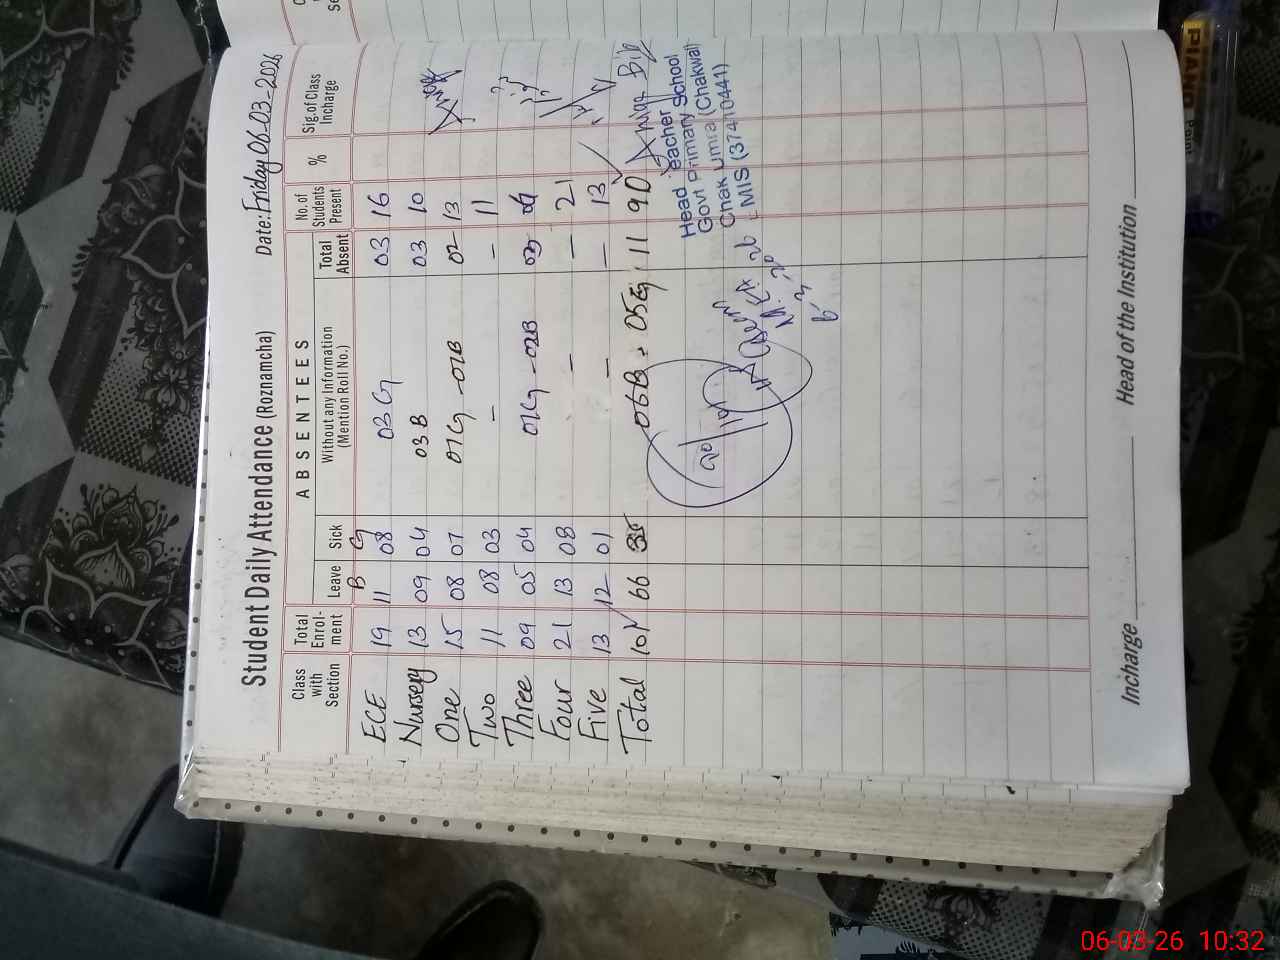 Student Daily Attendance (Roznamcha) Date: Friday 06-03-2026
Class with Section Total Enrol-ment ABSENTEES No. of Students Present % Sig. of Class Incharge
Leave Sick Without any Information (Mention Roll No.) Total Absent
B G
ECE 19 11 08 03G 03 16
Nursery 13 09 04 03B 03 10
One 15 08 07 01G - 01B 02 13
Two 11 08 03 - - 11
Three 09 05 04 01G - 02B 03
Four 21 13 08 - - 21
Five 13 12 01 - - 13
Total 101 66 35 06B + 05G 11 90
Head Teacher School
Govt Primary School (Chakwal)
Chak Umra
MIS (37410441)
Incharge Head of the Institution
PIANO
06-03-26 10:32